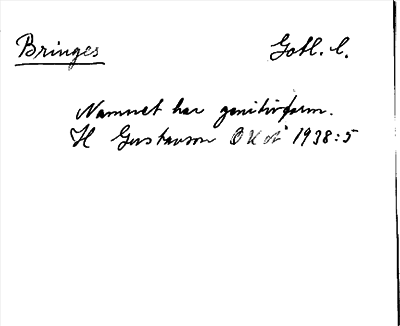 Bringes Gotl. l.
Namnet har genitivform.
H Gustavson 1938:5